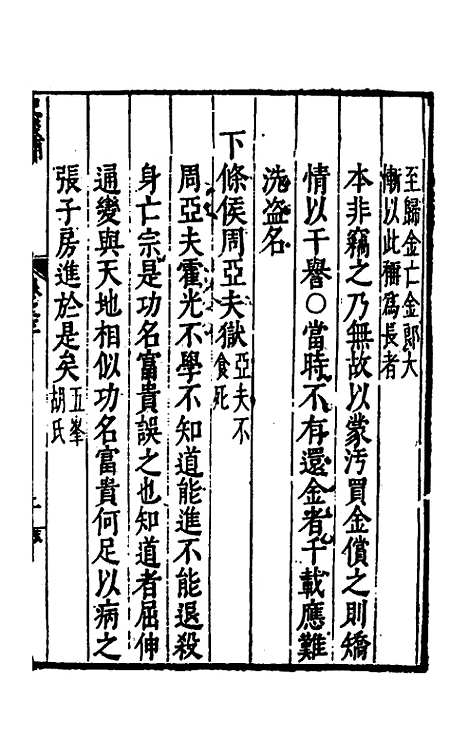 至歸金亡金郎大
慚以此稱為長者
本非竊之乃無故以蒙汚買金償之則矯
情以干譽○當時不有還金者千載應難
洗盗名
下條侯周亞夫獄亞夫不食死
周亞夫霍光不學不知道能進不能退殺
身亡宗是功名富貴誤之也知道者屈伸
通變與天地相似功名富貴何足以病之
張子房進於是矣五峯胡氏